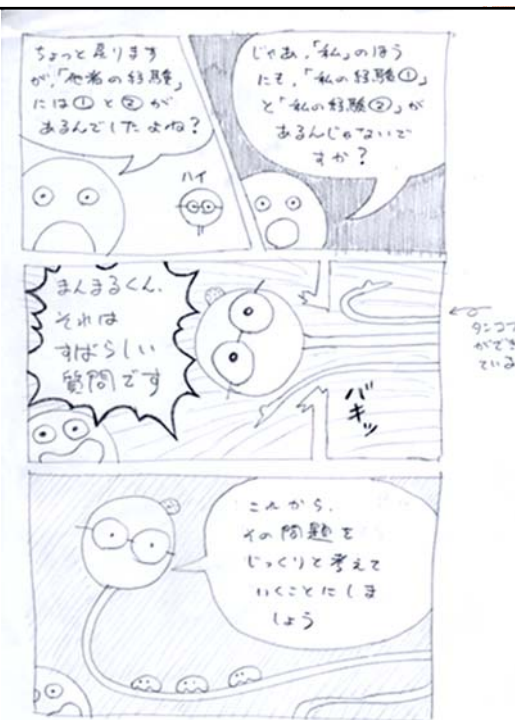 ちょっと戻ります
が、「他者の経験」
には①と②が
あるんでしたよね？
ハイ
じゃあ、「私」のほう
にも、「私の経験①」
と「私の経験②」が
あるんじゃないで
すか？
まんまるくん、
それは
すばらしい
質問です
バキッ
タンコブ
ができ
ている
これから、
その問題を
じっくりと考えて
いくことにしま
しょう